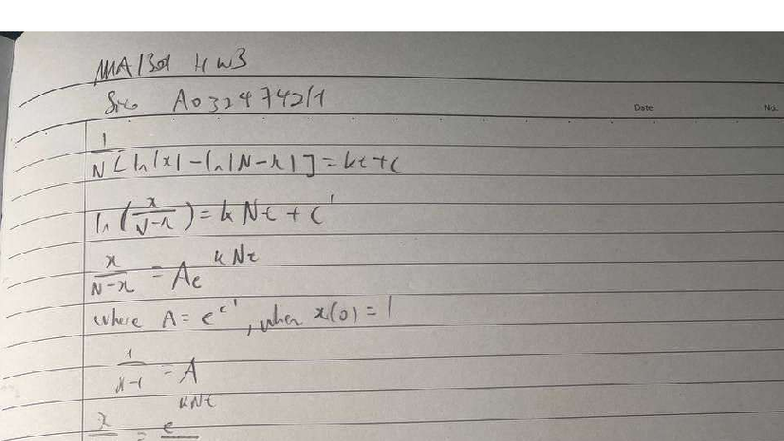 MA1301 HW3
A0324742M
Date
No.
1/N [ln|x| - ln|N-x|] = kt+c
ln(x/(N-x)) = kNt + c'
x/(N-x) = Ae^(kNt)
where A = e^(c'), when x(0) = 1
1/(N-1) = A
x/ = e^(kNt)/